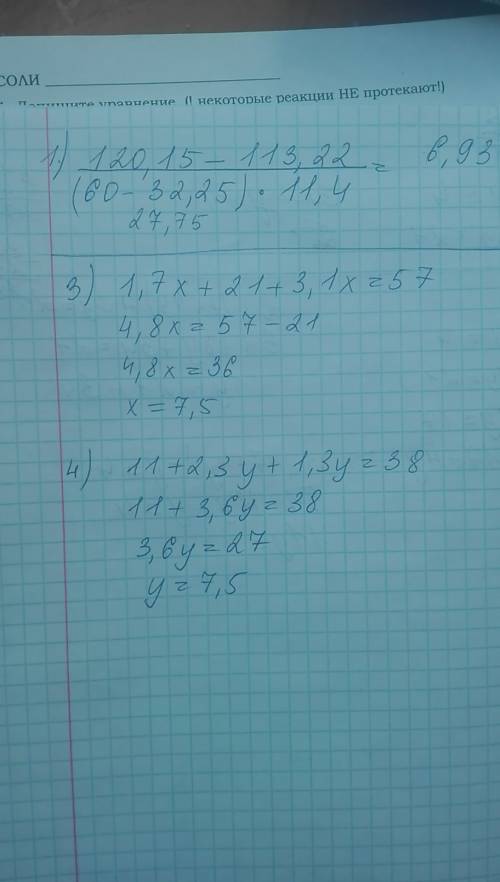 СОЛИ
Допишите уравнение. (! некоторые реакции НЕ протекают!)
1.) 120,15 - 113,22 = 6,93
(60 - 32,25) · 11,4
27,75
3) 1,7x + 21 + 3,1x = 57
4,8x = 57 - 21
4,8x = 36
x = 7,5
4) 11 + 2,3y + 1,3y = 38
11 + 3,6y = 38
3,6y = 27
y = 7,5